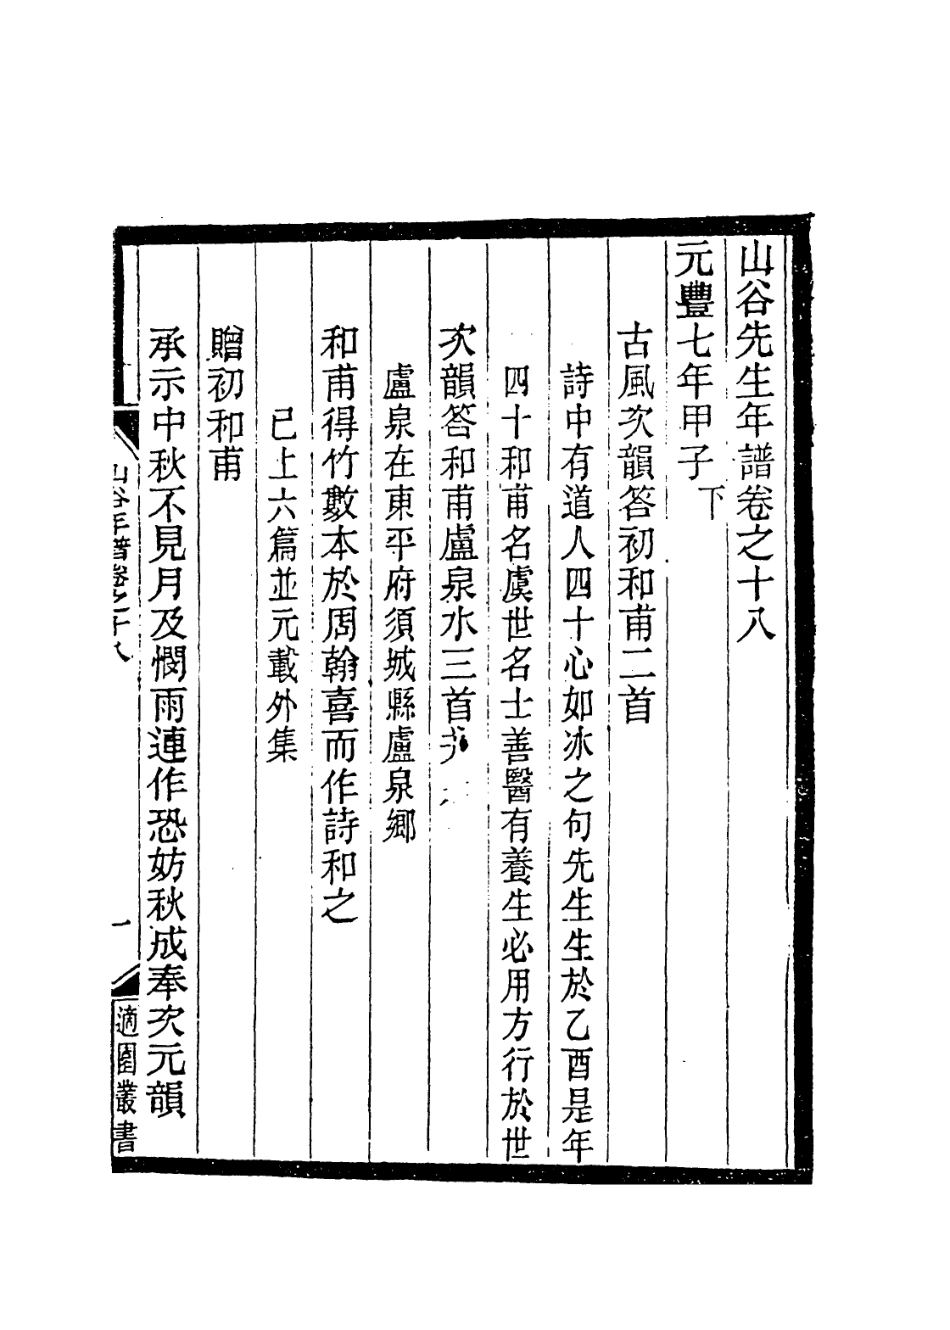 山谷先生年譜卷之十八
元豐七年甲子下
古風次韻答初和甫二首
詩中有道人四十心如冰之句先生生於乙酉是年
四十和甫名虞世名士善醫有養生必用方行於世
次韻答和甫盧泉水三首
盧泉在東平府須城縣盧泉鄉
和甫得竹數本於周翰喜而作詩和之
已上六篇並元載外集
贈初和甫
承示中秋不見月及憫雨連作恐妨秋成奉次元韻
山谷年譜卷之十八
一
適園叢書